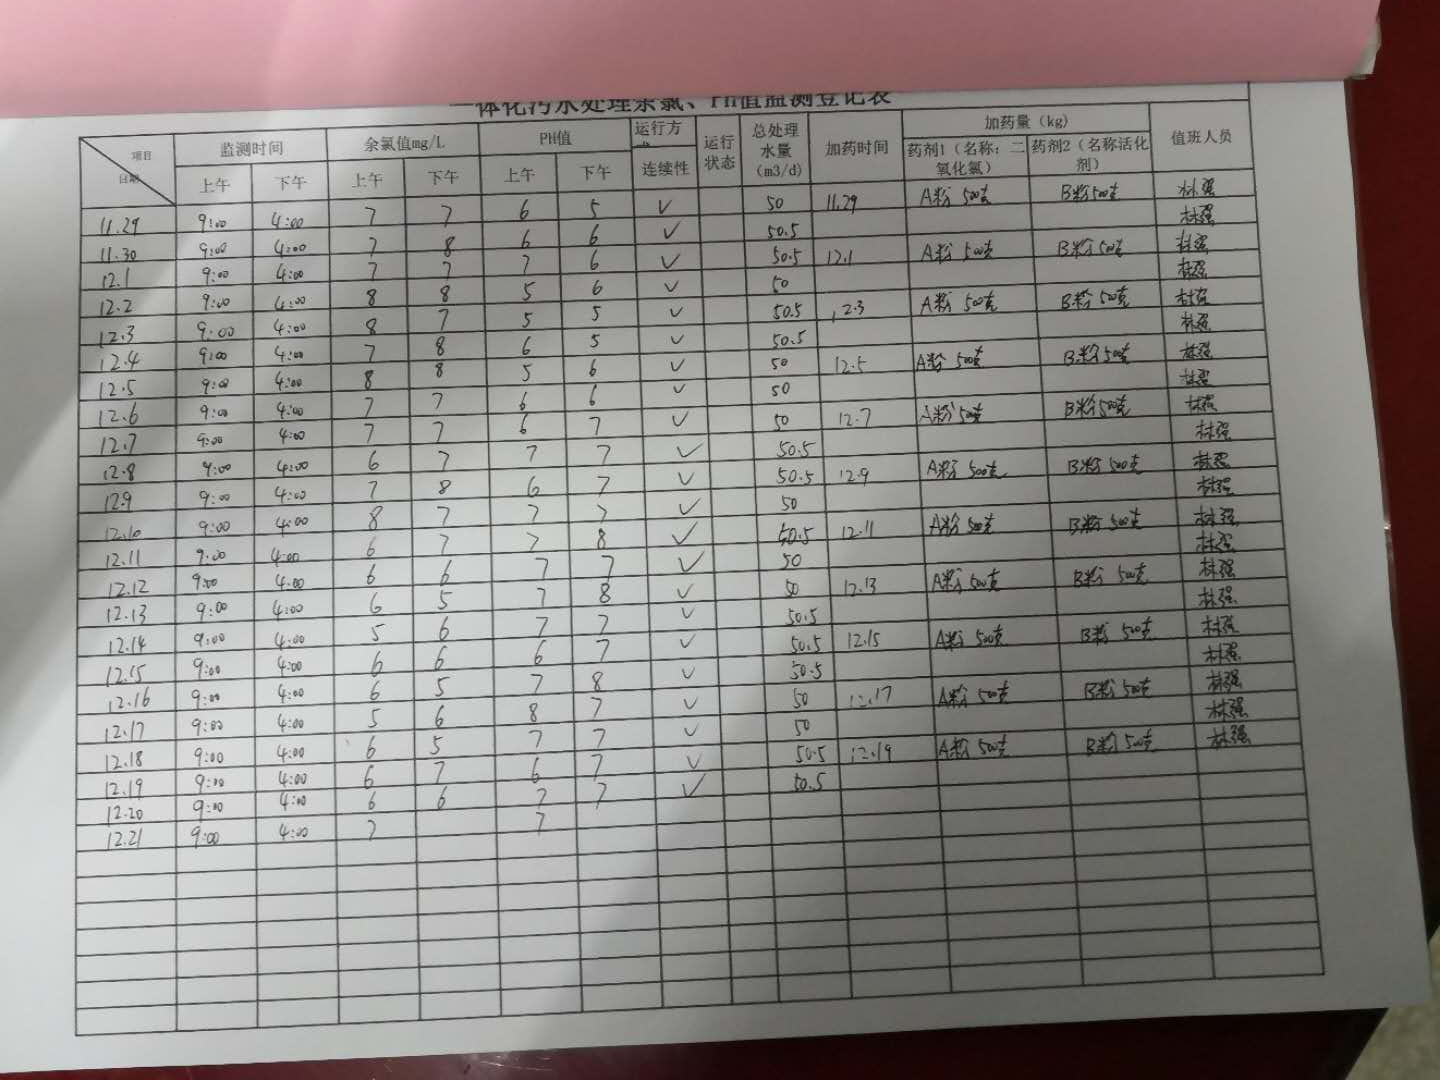 一体化污水处理余氯、PH值监测登记表
项目 日期 监测时间 余氯值mg/L PH值 运行方 运行状态 总处理水量(m3/d) 加药时间 加药量（kg） 值班人员
上午 下午 上午 下午 上午 下午 连续性 药剂1（名称：二氧化氯） 药剂2（名称活化剂）
11.29 9:00 4:00 7 7 6 5 ✓ 50 11.29 A粉 500克 B粉500克 林强
11.30 9:00 4:00 7 8 6 6 ✓ 50.5 林强
12.1 9:00 4:00 7 7 7 6 ✓ 50.5 12.1 A粉 500克 B粉500克 林强
12.2 9:00 4:00 8 8 5 6 ✓ 50 林强
12.3 9:00 4:00 8 7 5 5 ✓ 50.5 12.3 A粉 500克 B粉 500克 林强
12.4 9:00 4:00 7 8 6 5 ✓ 50.5 林强
12.5 9:00 4:00 8 8 5 6 ✓ 50 12.5 A粉 500克 B粉500克 林强
12.6 9:00 4:00 7 7 6 6 ✓ 50 林强
12.7 9:00 4:00 7 7 6 7 ✓ 50 12.7 A粉500克 B粉500克 林强
12.8 9:00 4:00 6 7 7 7 ✓ 50.5 林强
12.9 9:00 4:00 7 8 6 7 ✓ 50.5 12.9 A粉 500克 B粉 500克 林强
12.10 9:00 4:00 8 7 7 7 ✓ 50 林强
12.11 9:00 4:00 6 7 7 8 ✓ 50.5 12.11 A粉 500克 B粉 500克 林强
12.12 9:00 4:00 6 6 7 7 ✓ 50 林强
12.13 9:00 4:00 6 5 7 8 ✓ 50 12.13 A粉 500克 B粉 500克 林强
12.14 9:00 4:00 5 6 7 7 ✓ 50.5 林强
12.15 9:00 4:00 6 6 6 7 ✓ 50.5 12.15 A粉 500克 B粉 500克 林强
12.16 9:00 4:00 6 5 7 8 ✓ 50.5 林强
12.17 9:00 4:00 5 6 8 7 ✓ 50 12.17 A粉 500克 B粉 500克 林强
12.18 9:00 4:00 6 5 7 7 ✓ 50 林强
12.19 9:00 4:00 6 7 6 7 ✓ 50.5 12.19 A粉 500克 B粉 500克 林强
12.20 9:00 4:00 6 6 7 7 ✓ 50.5
12.21 9:00 4:00 7 7